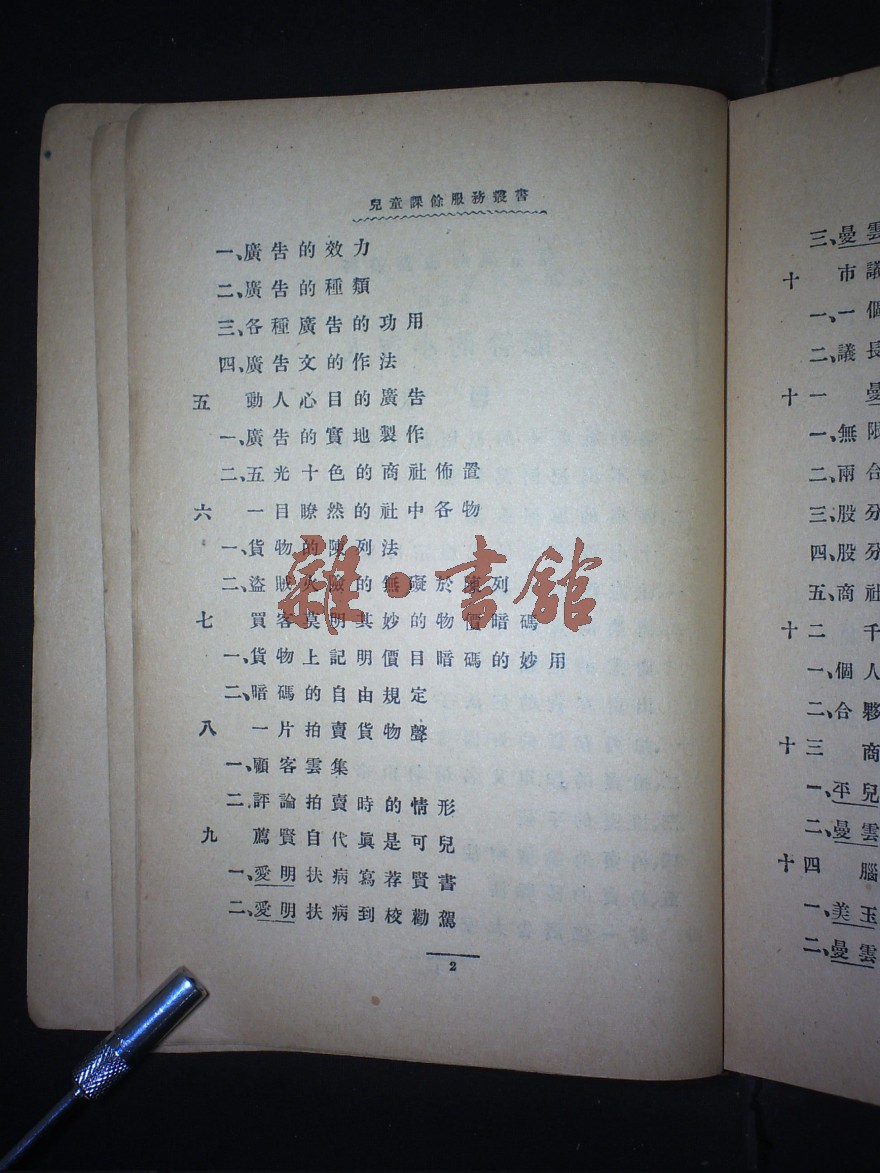 兒童課餘服務叢書
一、廣告的效力
二、廣告的種類
三、各種廣告的功用
四、廣告文的作法
五 動人心目的廣告
一、廣告的實地製作
二、五光十色的商社佈置
六 一目瞭然的社中各物
一、貨物的陳列法
二、盜賊火險的無礙於陳列
七 買客莫明其妙的物價暗碼
一、貨物上記明價目暗碼的妙用
二、暗碼的自由規定
八 一片拍賣貨物聲
一、顧客雲集
二、評論拍賣時的情形
九 薦賢自代眞是可兒
一、愛明扶病寫荐賢書
二、愛明扶病到校勸駕
2
三、曼雲
十 市議
一、一個
二、議長
十一 曼
一、無限
二、兩合
三、股分
四、股分
五、商社
十二 千
一、個人
二、合夥
十三 商
一、平兒
二、曼雲
十四 腦
一、美玉
二、曼雲
雜·書館